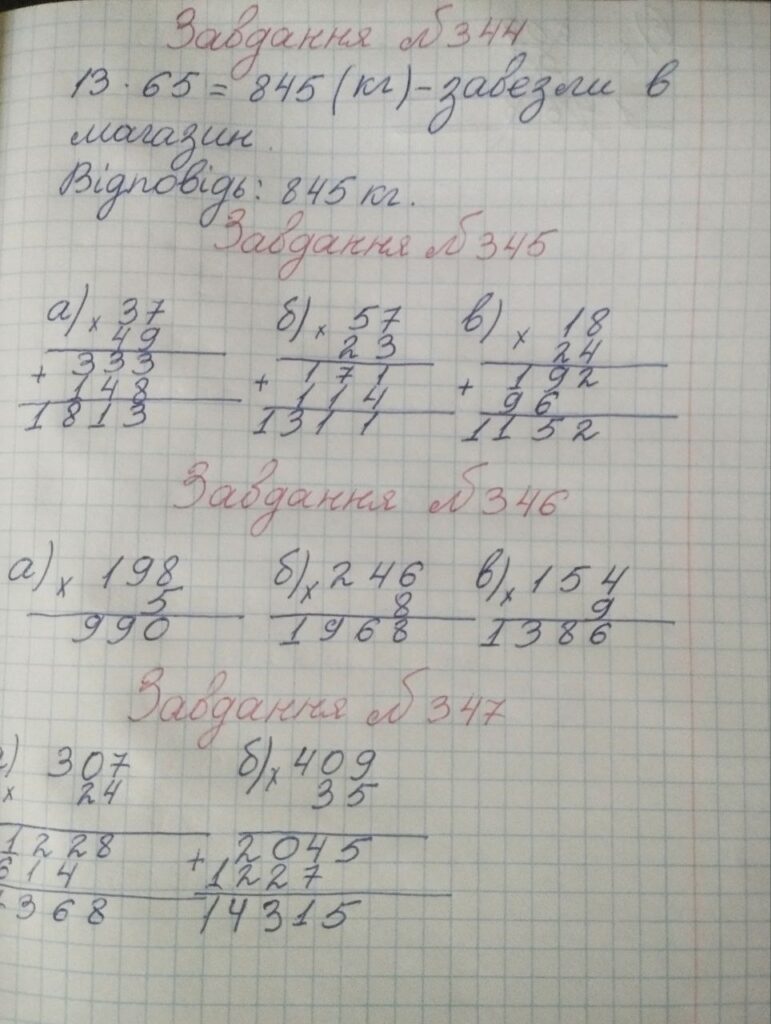 Завдання №344
13 · 65 = 845 (кг) - завезли в
магазин.
Відповідь: 845 кг.
Завдання №345
а) × 37 б) × 57 в) × 18
49 23 24
+ 333 + 171 + 192
148 114 96
1813 1311 1152
Завдання №346
а) × 198 б) × 246 в) × 154
5 8 9
990 1968 1386
Завдання №347
) 307 б) × 409
× 24 35
1228 + 2045
614 1227
368 14315